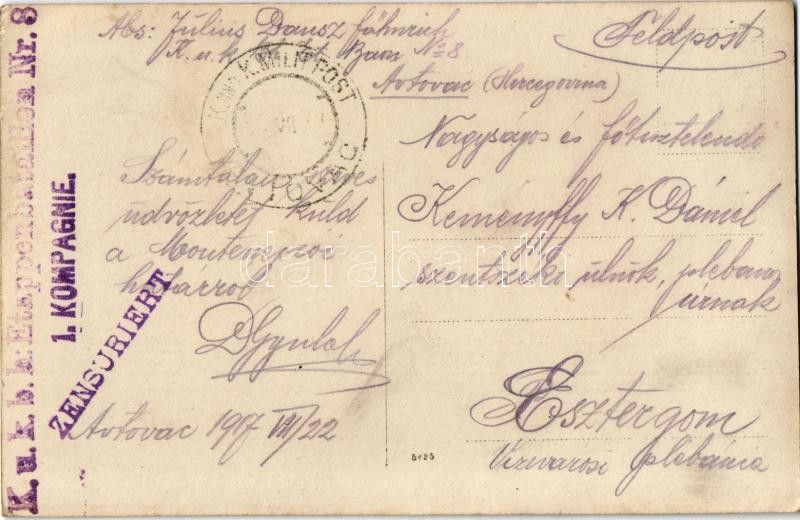 Abs: Július Dausz fähnrich
K. u. k. Baon No 8
Avtovac (Hercegovina)
Feldpost
K. u. k. b. h. Etappenbataillon Nr. 8
1. KOMPAGNIE.
ZENSURIERT
K.UND K. MILIT. POST
AVTOVAC
Számtalan szíves
üdvözletet küld
a Montenegrói
határról
DGyula
Avtovac 1917 VII/22
Nagyságos és főtisztelendő
Keményffy K. Dániel
szentszéki ülnök, plebános
úrnak
Esztergom
Vizivárosi plebánia
5125
darabanth